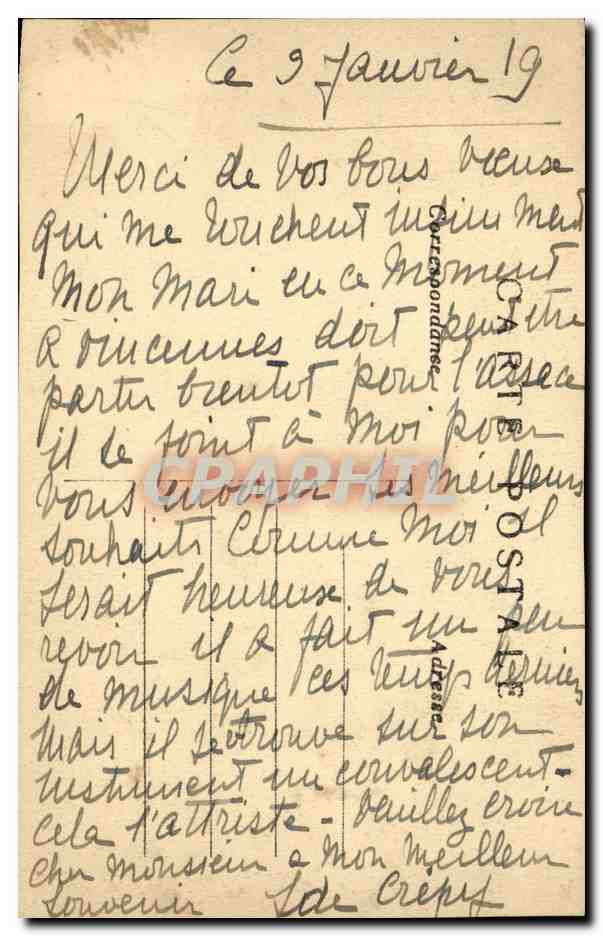 Ce 9 Janvier 19
Merci de vos bons vœuxe
qui me touchent infiniment
Mon Mari en ce Moment
a vincennes doit peut etre
partir bientot pour l'assace
il se joint à Moi pour
vous envoyer ses meilleurs
souhaits Comme Moi il
serait heureuse de vous
revoir il a fait un peu
de musique ces temps derniers
Mais il se trouve sur son
instrument un convalescent -
cela l'attriste - veuillez croire
Cher Monsieur a Mon Meilleur
souvenir
CARTE POSTALE
Correspondance
Adresse
CPAPHIL